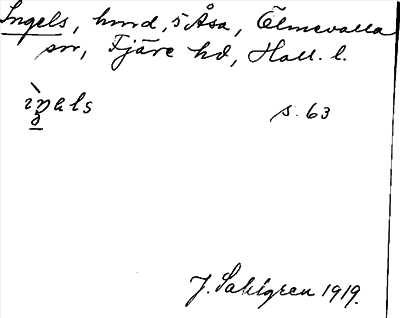 Ingels, hmd, i Åsa, Ölmevalla
sn, Fjäre hd, Hall. l.
s. 63
J. Sahlgren 1919.